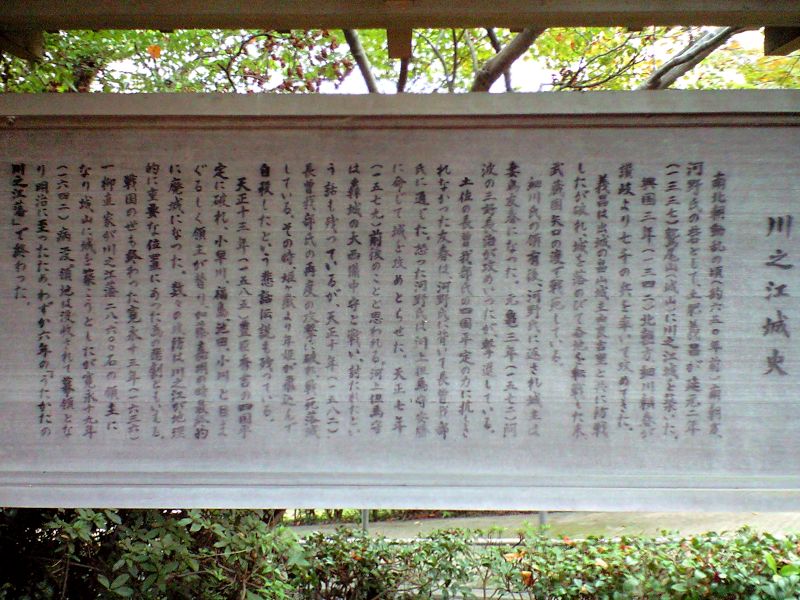 川之江城史
南北朝動乱の頃(約六五〇年前)南朝方、
河野氏の砦として、土肥義昌が延元二年
(一三三七)鷲尾山(城山)に川之江城を築いた。
興国三年(一三四二)北朝方細川頼春が
讃岐より七千の兵を率いて攻めてきた。
義昌は出城の畠山城主由良吉里と共に防戦
したが破れ、城を落のびて各地を転戦した末
武蔵国矢口の渡で戦死している。
細川氏の領有後、河野氏に返され城主は
妻鳥友春になった。元亀三年(一五七二)阿
波の三好長治が攻めいったが撃退している。
土佐の長曽我部氏の四国平定の力に抗しき
れなかった友春は河野氏に背いて長曽我部
氏に通じた。怒った河野氏は河上但馬守安勝
に命じて城を攻めとらせた。天正七年
(一五七九)前後のことと思われる。河上但馬守
は轟城の大西備中守と戦い、討たれたとい
う話も残っているが、天正十年(一五八二)
長曽我部氏の再度の攻撃に破れ戦死落城
している。その時姫ヶ嶽より年姫が飛込んで
自殺したという悲話伝説も残っている。
天正十三年(一五八五)豊臣秀吉の四国平
定に破れ、小早川、福島、池田、小川と目ま
ぐるしく領主が替り、加藤嘉明の時最終的
に廃城になった。数々の攻防は川之江が地理
的に重要な位置にあった為の悲劇ともいえる。
戦国の世も終わった寛永十三年(一六三六)
一柳直家が川之江藩二八六〇〇石の領主に
なり城山に城を築こうとしたが寛永十九年
(一六四二)病没、領地は没収されて幕領とな
り明治に至ったため、わずか六年の「うたかたの
川之江藩」で終わった。